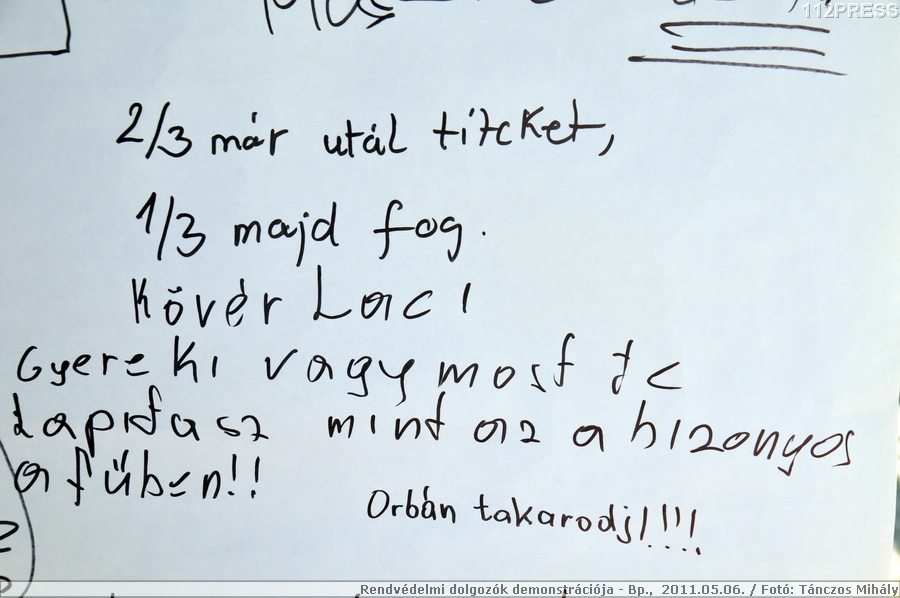 112PRESS
2/3 már utál titeket,
1/3 majd fog.
Kövér Laci
Gyere ki vagy most te
lapitasz mint az a bizonyos
a fűben!!
Orbán takarodj!!!!
Rendvédelmi dolgozók demonstrációja - Bp., 2011.05.06. / Fotó: Tánczos Mihály